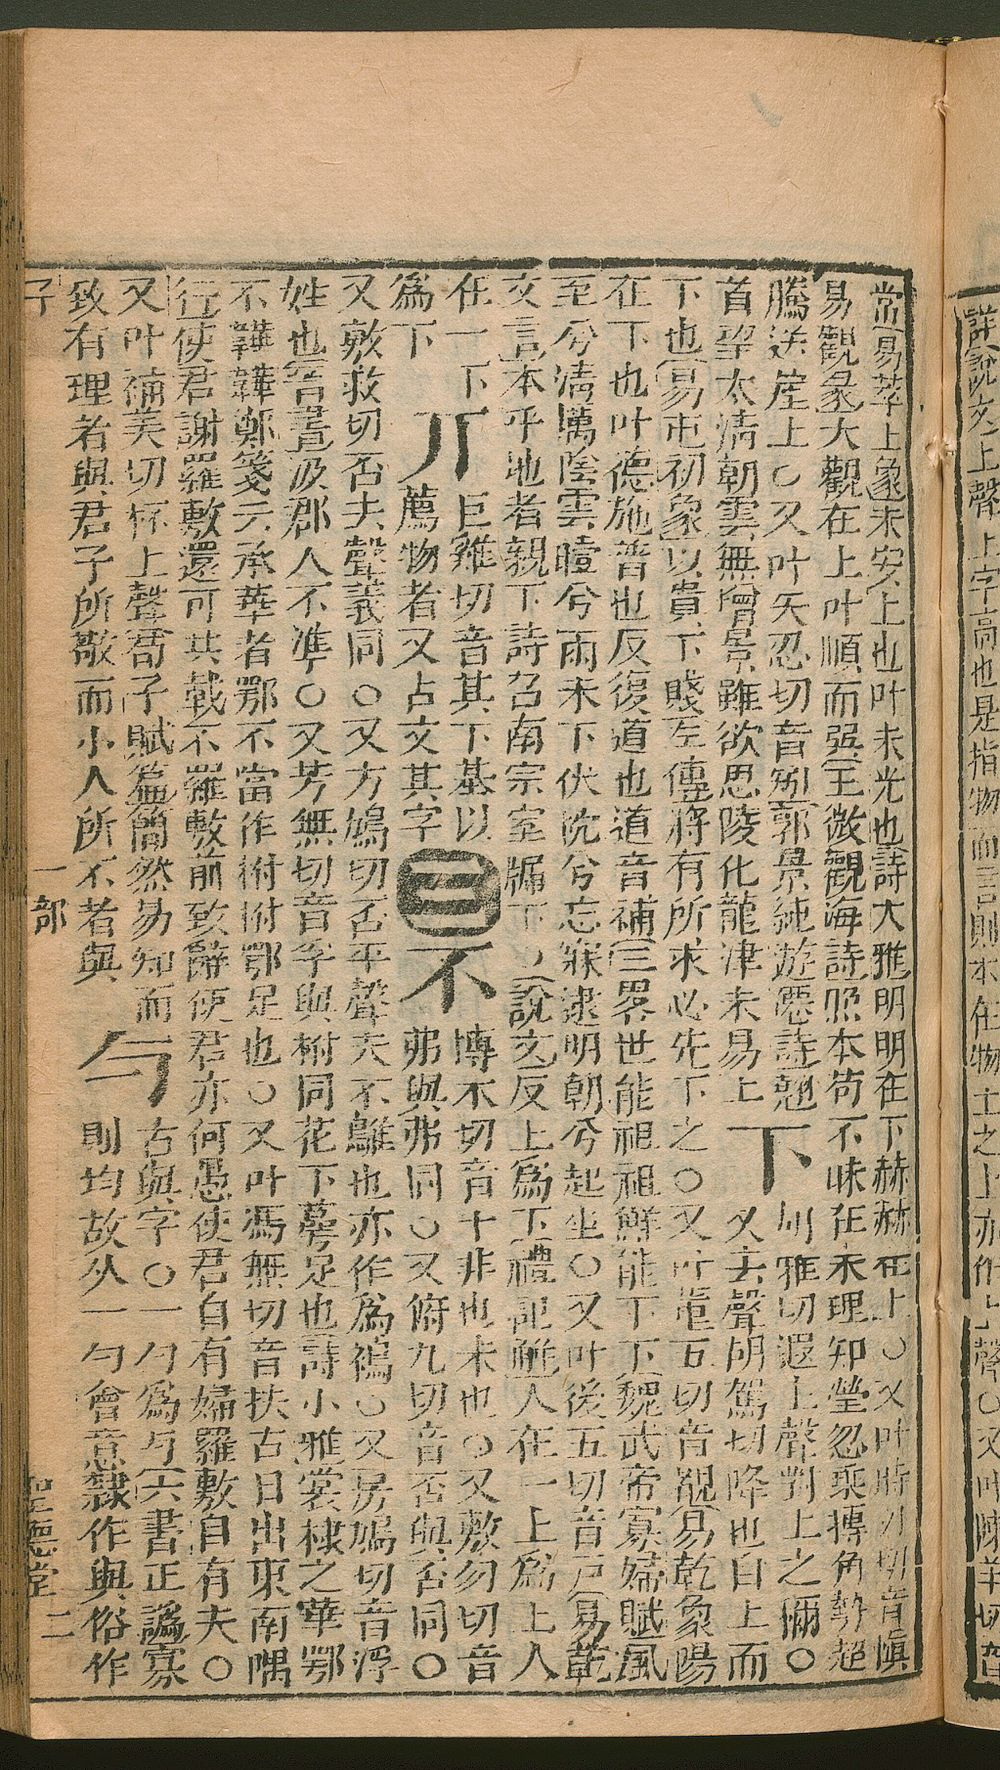 常易萃上象未安上也叶未光也詩大雅明明在下赫赫在上○又叶時刃切音愼
易觀彖大觀在上叶順而巽王微觀海詩照本苟不昧在末理知瑩忽乘摶角勢超
騰送崖上○又叶矢忍切音矧郭景純遊僊詩翹
首望太清朝雲無增景雖欲思陵化龍津未易上
下
胡雅切遐上聲對上之稱○
又去聲胡駕切降也自上而
下也易屯初象以貴下賤左傳將有所求必先下之○又叶童五切音覩易乾象陽
在下也叶德施普也反復道也道音補三畧世能祖祖鮮能下下魏武帝寡婦賦風
至兮淸厲陰雲曀兮雨未下伏枕兮忘寐逮明朝兮起坐○又叶後五切音戸易乾
文言本乎地者親下詩召南宗室牖下○說玄反上爲下禮記雖人在一上爲上人
在一下
爲下
丌
巨雞切音其下基以
薦物者又占文其字
三
不
博木切音十非也未也○又敷勿切音
弗與弗同○又俯九切音否與否同○
又敷救切否去聲義同○又方鳩切否平聲夫不鵻也亦作爲鴀○又房鳩切音浮
姓也晉書汲郡人不準○又芳無切音孚與柎同花下萼足也詩小雅裳棣之華鄂
不韡韡鄭箋云承華者鄂不當作柎柎鄂足也○又叶馮無切音扶古日出東南隅
行使君謝羅敷還可共載不羅敷前致辭使君亦何愚使君自有婦羅敷自有夫○
又叶補美切杯上聲荀子賦篇簡然易知而
致有理者與君子所敬而小人所不者與
与
古與字○一勺爲与六書正譌寡
則均故从一勺會意隸作與俗作
子
一部
聖德堂
二